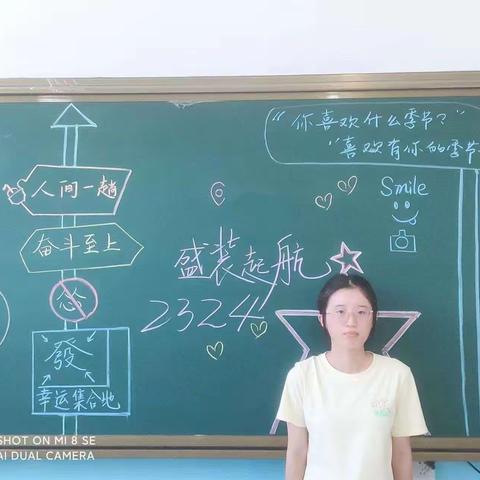 "你喜欢什么季节?"
"喜欢有你的季节
人间一趟
Smile
奋斗至上
盛装起航
2324
發
幸运集合地
SHOT ON MI 8 SE
AI DUAL CAMERA